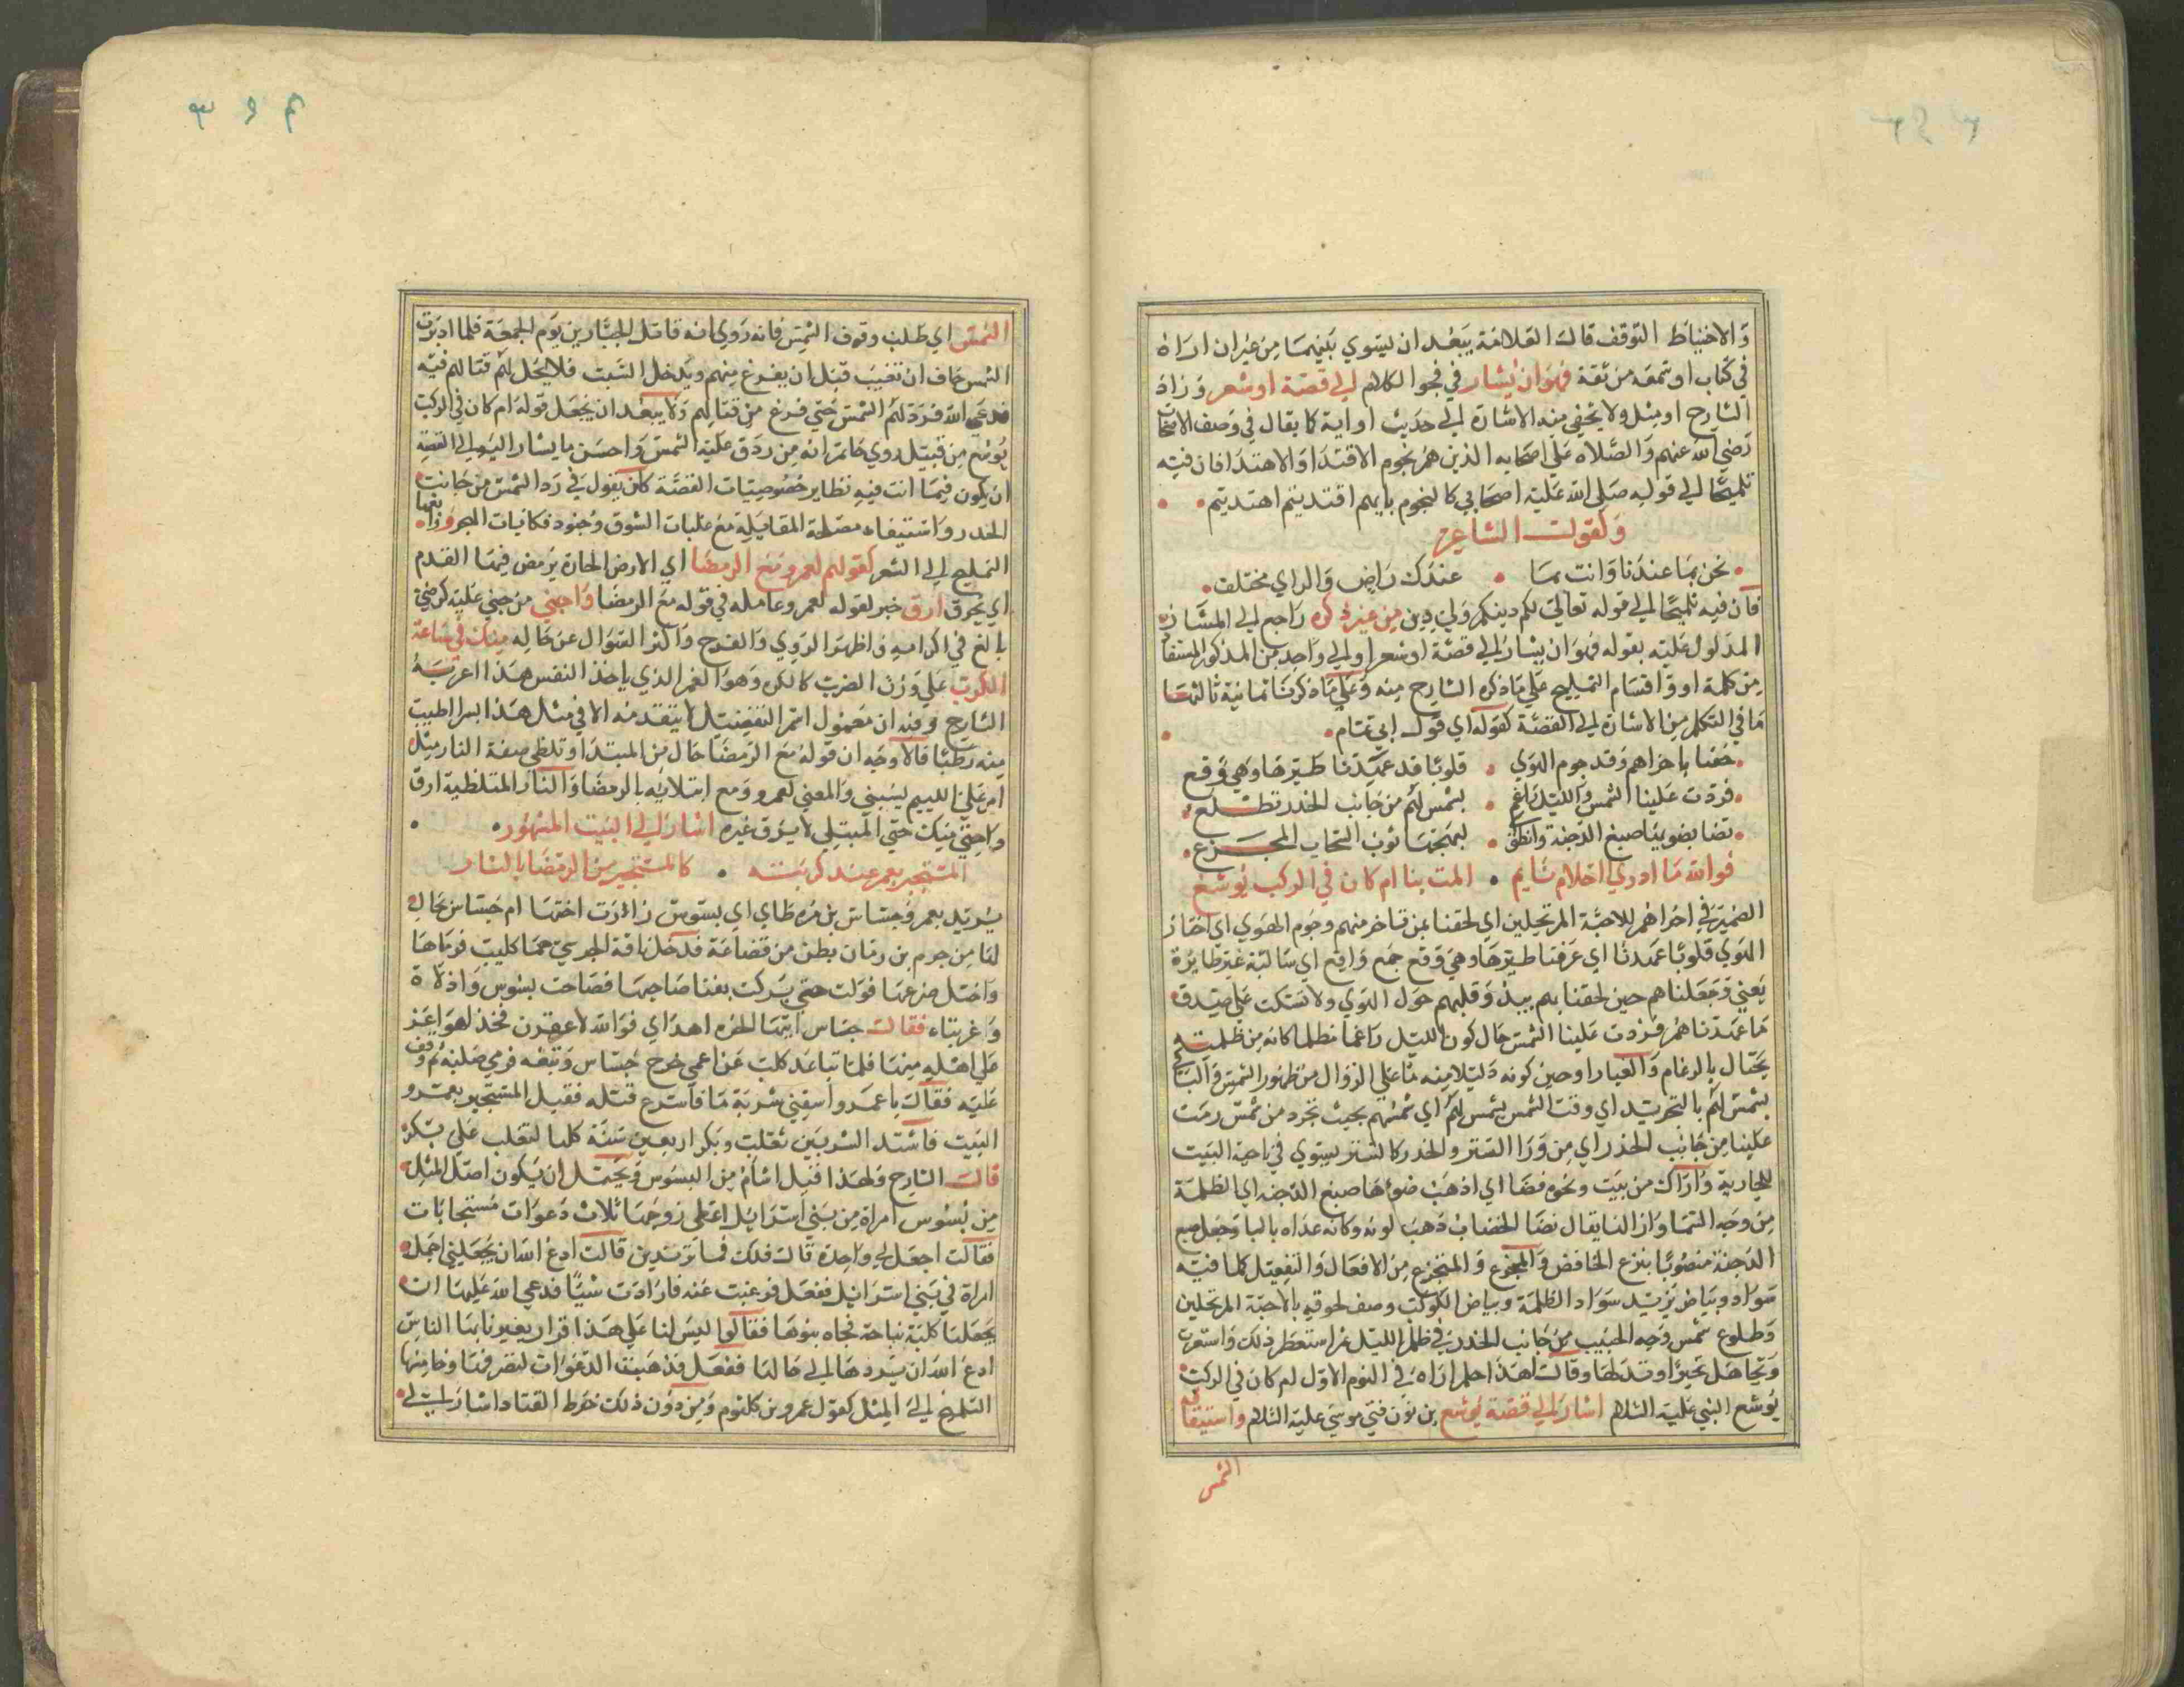 والاحتياط التوقف قال العلامة يبعد ان يستوي بينهما من غير ان اراه
في كتاب او سمعه من ثقة فهو ان يشار في فحوا الكلام الي قصة او شعر وزاد
الشارح او مثل ولا يخفي منه الاشارة الي حديث او اية كما يقال في وصف الاصحاب
رضي الله عنهم والصلاه علي اصحابه الذين هم نجوم الاقتدا والاهتدا فان فيه
تلميحا الي قوليه صلي الله عليه اصحابي كالنجوم بايهم اقتديتم اهتديتم
وكقول الشاعر
نحن بما عندنا وانت بما عندك راض والراي مختلف
فان فيه تلميحا الي قوله تعالي لكم دينكم ولي دين من غير ذكره راجع الي المشار
المدلول عليه بقوله فهو ان يشار الي قصة او شعر او الي واحد من المذكور المستفاد
من كلمة او واقسام التمليح علي ما ذكره الشارح منه وعلي ما ذكرنا ثمانية ثالثها
ما في التكلم من الاشارة الي القصة كقوله اي قول ابي تمام
لحقنا باخراهم وقد حوم الهوي قلوبا قد عهدنا طيرها وهي وقع
فردت علينا الشمس والليل راغم بشمس لهم من جانب الخدر تطلع
نضا ضويها صبغ الدجنة وانطوي لبهجتها ثوب السحاب المجزع
فوالله ما ادري احلام نايم المت بنا ام كان في الركب يوشع
الضمير في اخراهم للاحبة المرتحلين اي لحقنا بمن تاخر منهم وحوم الهوي اي
الهوي قلوبا عهدنا اي عرفنا طيرها وهي وقع جمع واقع اي ساكنة غير طايرة
يعني وجعلناهم حين لحقنا بهم وقلبهم حول الهوي ولا علي
ما عهدناهم فردت علينا الشمس حال كون الليل راغما مظلما كانه من ظلمته
يحتال بالرغام والغبار او حين كونه ذليلا منه علي الزوال من ظهور الشمس والبا في
بشمس لهم بالتجريد اي وقت الشمس بشمس لهم اي شمسهم بحيث تجرد من شمس رمت
علينا من جانب الخدر اي من ورا الستر والخدر كالستر يسوي في ناحية البيت
للجارية وازاك من بيت ونحوه فضا اي اذهب ضوءها صبغ الدجنه اي الظلمة
من وجه السما وازالنا يقال نضا الخضاب ذهب لونه وكانه عداه بالبا وجعل صبغ
الدجنة منصوبا بنزع الخافض والمجزع والمتجزع من الافعال والتفعيل كلما فيه
سواد وبياض يريد سواد الظلمة وبياض الكوكب وصف لحوقه بالاحبة المرتحلين
وطلوع شمس وجه الحبيب من جانب الخدر في ظلم الليل ثم استعظم ذلك واستغرب
وتجاهل تحيرا وتدلها وقال اهذا احلم اراه في النوم الاول ام كان في الركب
يوشع النبي عليه السلام اشارة الي قصة يوشع بن نون فتي موسي عليه السلام واستيقافه
الشمس
الشمس اي طلب وقوف الشمس فانه روي انه قاتل الجبارين يوم الجمعة فلما ادبرت
الشمس خاف ان تغيب قبل ان يفرغ منهم ويدخل السبت فلا يحل لهم قتالهم فيه
فدعي الله فرد لهم الشمس حتي فرغ من قتالهم ولا يبعد ان يجعل قوله ام كان في الركب
يوشع من قبيل روي انه من ردق عليه الشمس واحسن ما يشار اليه الي القصة
ان يكون فيما انت فيه نظاير خصوصيات القصة كان يقول في رد الشمس من جانب
الخدر واستيفاء مصلحة المقابلة مع غلبات الشوق وجنود فكانيات الهجر وزاد بعضها
التمليح الي الشعر كقولهم لعمرو مع الرمضا اي الارض الحارة يرمض فيها القدم
اي يحرق ارق خبر لقوله لعمرو وعامله في قوله مع الرمضا واحني من حني عليه كرضي
بالغ في اكرامه واظهر الروي والفرح واكثر السوال عن حاله منك في ساعة
الكرب علي وزن الضرب كالكره وهو الغم الذي ياخذ النفس هذا اعربه
الشارح وفيه ان معمول اسم التفضيل لا يتقدمه الا في مثل هذا بسرا اطيب
منه رطبا فالاوجه ان قوله مع الرمضا حال من المبتدا وتلظي صفة النار مثل
امر علي اللئيم يسبني والمعني لعمرو مع ابتلائه بالرمضا والنار المتلظية ارق
واحني منك حتي المبتلي لا يرق غيره اشارة الي البيت المشهور
المستجير بعمرو عند كربته كالمستجير من الرمضا بالنار
يريد بعمرو جساس بن مره اي بسوس زارت اختها ام جساس بجار
لها من جرم بن زبان بطن من قضاعة فدخل ناقة الجرمي حما كليب فرماها
واختل ضرعها فولت حتي بركت بفنا صاحبها فصاحت بسوس واذلاه
واغربتاه فقال جساس ايتها الحره اهداي فوالله لاعقرن فخذ لهو اعز
علي اهله منها فلما تباعد كليب عن الحمي خرج جساس وتبعه فرمي صلبه ثم وقف
عليه فقال يا عمرو اسقني شربة ما فاسرع قتله فقيل المستجير بعمرو
البيت فاشتد الشر بين تغلب وبكر اربعين سنة كلها لتغلب علي بكر
قال الشارح ولهذا قيل اشام من البسوس ويحتمل ان يكون اصل المثل
من بسوس امراة من بني اسرايل اعطي زوجها ثلاث دعوات مستجابات
فقالت اجعل لي واحدة قال فلك فما تريدين قالت ادع الله ان يجعلني اجمل
امراة في بني اسرايل ففعل فرغبت عنه فارادت شيا فدعي الله عليها ان
يجعلنا كلبة نباحة فجاه بنوها فقالوا ليس لنا علي هذا قرار يعيرونا بها الناس
ادع الله ان يردها الي حالها ففعل فذهبت الدعوات
التلميح الي المثل كقول عمرو بن كلثوم ومن دون ذلك خرط القتاد اشارة الي